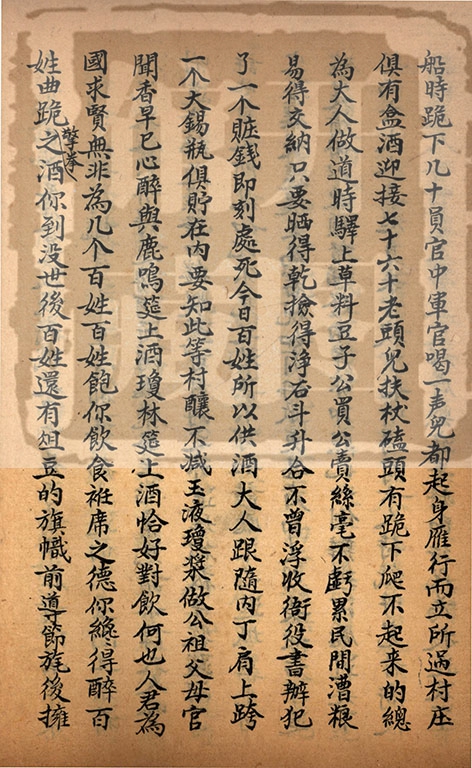 船時跪下几十員官中軍官喝一声兒都起身雁行而立所過村庄
俱有盒酒迎接七十六十老頭兒扶杖磕頭有跪下爬不起来的總
為大人做道時驛上草料豆子公買公賣絲毫不虧累民間漕粮
易得交納只要晒得乾撿得淨石斗升合不曾浮收衙役書辦犯
了一个賍錢即刻處死今日百姓所以供酒大人跟隨內丁肩上跨
一个大錫瓶俱貯在內要知此等村釀不减玉液瓊漿做公祖父母官
聞香早已心醉與鹿鳴筵上酒瓊林筵上酒恰好對飲何也人君為
國求賢無非為几个百姓百姓飽你飲食袵席之德你纔得醉百
姓曲跪之酒你到没世後百姓還有俎豆的旗幟前導節旄後擁
擎拳